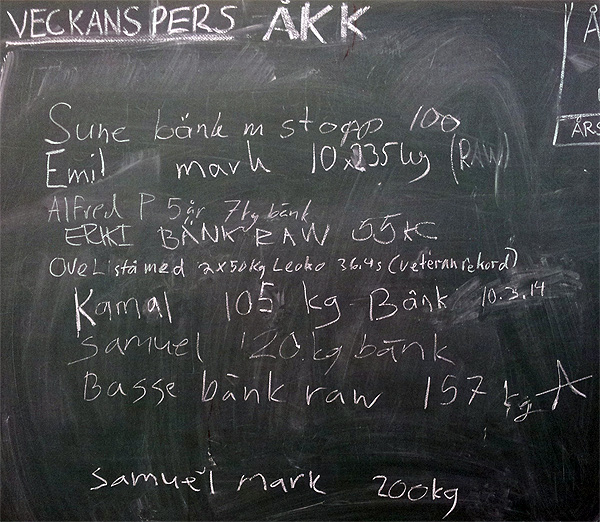 VECKANS PERS ÅKK
Sune bänk m stopp 100
Emil mark 10x235kg (RAW)
Alfred P 5 år 7kg bänk
ERIKI BÄNK RAW 55 KG
Ove Li stå med 2x50kg Leoko 36.4s (veteranrekord)
Kamal 105 kg Bänk 10.3.14
Samuel 120 kg bänk
Basse bänk raw 157 kg
Samuel mark 200kg
ÅRS